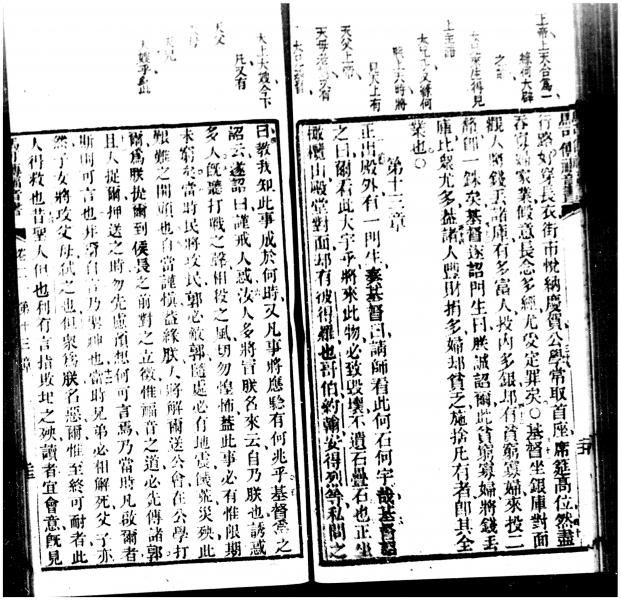 行路好穿長衣街市悅納慶賀公學常取首座席筵高位然盡
吞寡婦家業假意長念多經尤受定罪矣○基督坐銀庫對面
觀人將錢丟諸庫有多富人投内多銀却有貧窮寡婦來投二
即一銖矣基督遂詔門生曰朕誠詔爾此貧窮寡婦將錢丟
庫比衆尤多蓋諸人豐財捐多婦却貧乏施捨凡有者即其全
業也○
第十三章
正出殿外有一門生奏基督曰請師看此何石何宇哉基督詔
之曰爾看此大宇乎將來此物必致毀壞不遺石疊石也正坐
橄欖山殿堂對面却有彼得羅也哥伯約翰安得烈等私問之
曰教我知此事成於何時又凡事將應驗有何兆乎基督答之
詔云遂詔曰謹戒人惑汝人多將冒朕名來云自乃朕也誘惑
多人既聽打戰之聲相投之風切勿惶怖蓋此事必有惟限期
未窮矣當時民將攻民郭必敵郭隨處必有地震饑荒災殃此
艱難之開頭也自當謹慎蓋緣朕人將解送公會在公學打
爾爲朕捉爾到侯長之前對之立徵惟福音之道必先傳諸郭
且人捉爾押送之時勿先慮預想何可言焉乃當時凡啟爾者
斯則可言也非爾自言乃聖神也當時兄弟必相解死父子亦
然子女將攻父母弒之也但衆爲朕名惡爾惟至終可耐者此
人得救也昔聖人但也利有言指敗地之殃讀者宜會意既見
上帝上大合爲一
天父上帝
第十三章